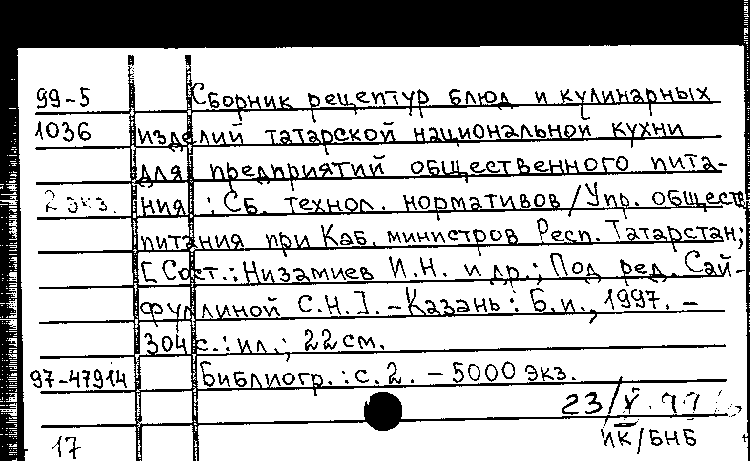 99-5 Сборник рецептур блюд и кулинарных
1036 изделий татарской национальной кухни
для предприятий общественного пита-
2 экз. ния : Сб. технол. нормативов / Упр. обществ.
питания при Каб. министров Респ. Татарстан;
[Сост.: Низамиев И.Н. и др.; Под ред. Сай-
фуллиной С.Н.]. - Казань : Б.и., 1997. -
304 с. : ил.; 22 см.
97-47914 Библиогр.: с. 2. - 5000 экз.
23/V.
17 ИК/БНБ